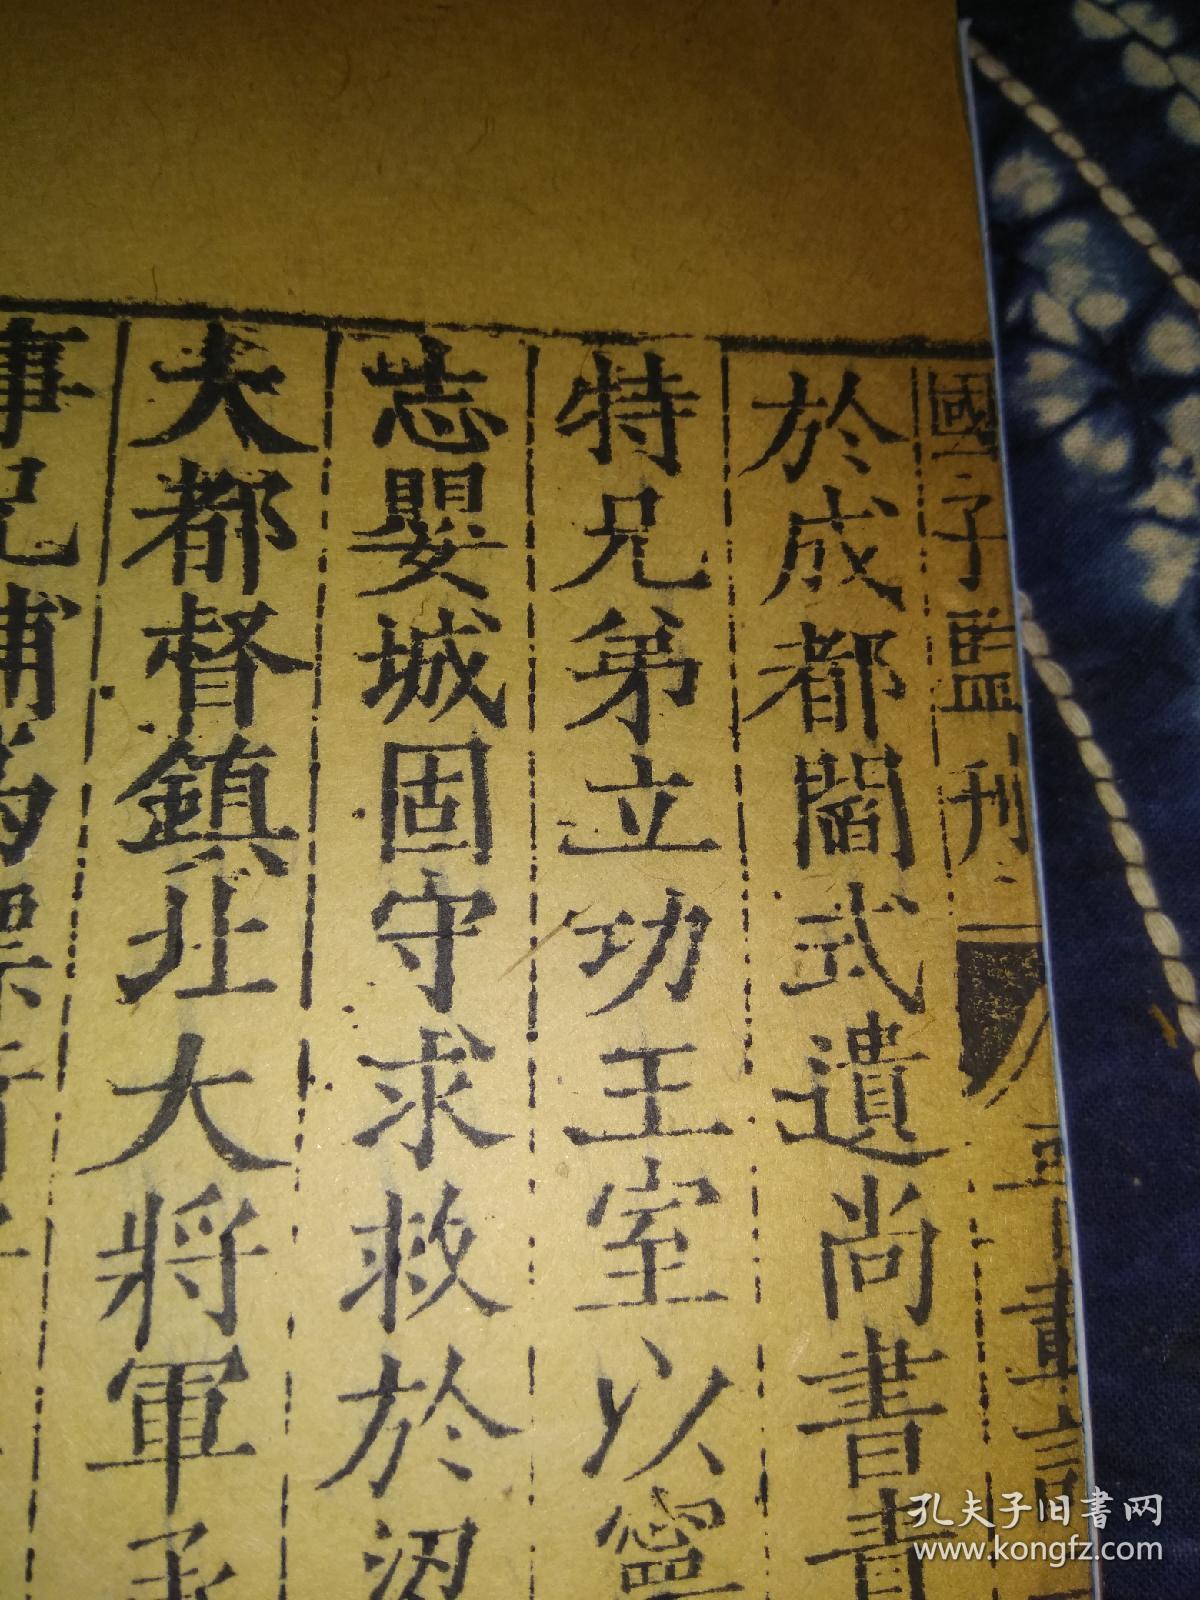 國子監刊
晉書載記
於成都閻式遺尚書書
特兄弟立功王室以寧
志嬰城固守求救於
大都督鎮北大將軍承
事兄輔為驃
孔夫子旧書网
www.kongfz.com